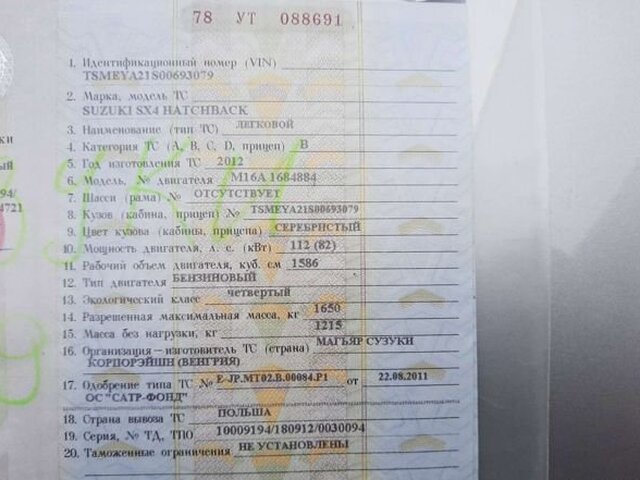 78 УТ 088691
1. Идентификационный номер (VIN)
TSMEYA21S00693079
2. Марка, модель ТС
SUZUKI SX4 HATCHBACK
3. Наименование (тип ТС) ЛЕГКОВОЙ
4. Категория ТС (A, B, C, D, прицеп) B
5. Год изготовления ТС 2012
6. Модель, № двигателя M16A 1684884
7. Шасси (рама) № ОТСУТСТВУЕТ
8. Кузов (кабина, прицеп) № TSMEYA21S00693079
9. Цвет кузова (кабины, прицепа) СЕРЕБРИСТЫЙ
10. Мощность двигателя, л. с. (кВт) 112 (82)
11. Рабочий объем двигателя, куб. см 1586
12. Тип двигателя БЕНЗИНОВЫЙ
13. Экологический класс четвертый
14. Разрешенная максимальная масса, кг 1650
15. Масса без нагрузки, кг 1215
16. Организация—изготовитель ТС (страна) МАГЬЯР СУЗУКИ
КОРПОРЭЙШН (ВЕНГРИЯ)
17. Одобрение типа ТС № E-JP.MT02.B.00084.P1 от 22.08.2011
ОС "САТР-ФОНД"
18. Страна вывоза ТС ПОЛЬША
19. Серия, № ТД, ТПО 10009194/180912/0030094
20. Таможенные ограничения НЕ УСТАНОВЛЕНЫ